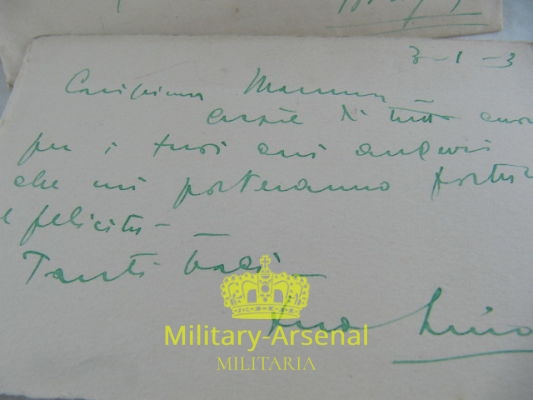 3-1-3
Carissima Mamma
Grazie di tutto cuor
per i tuoi cari auguri
che mi porteranno fortu
e felicità -
Tanti baci
tuo Nino
Military-Arsenal
MILITARIA